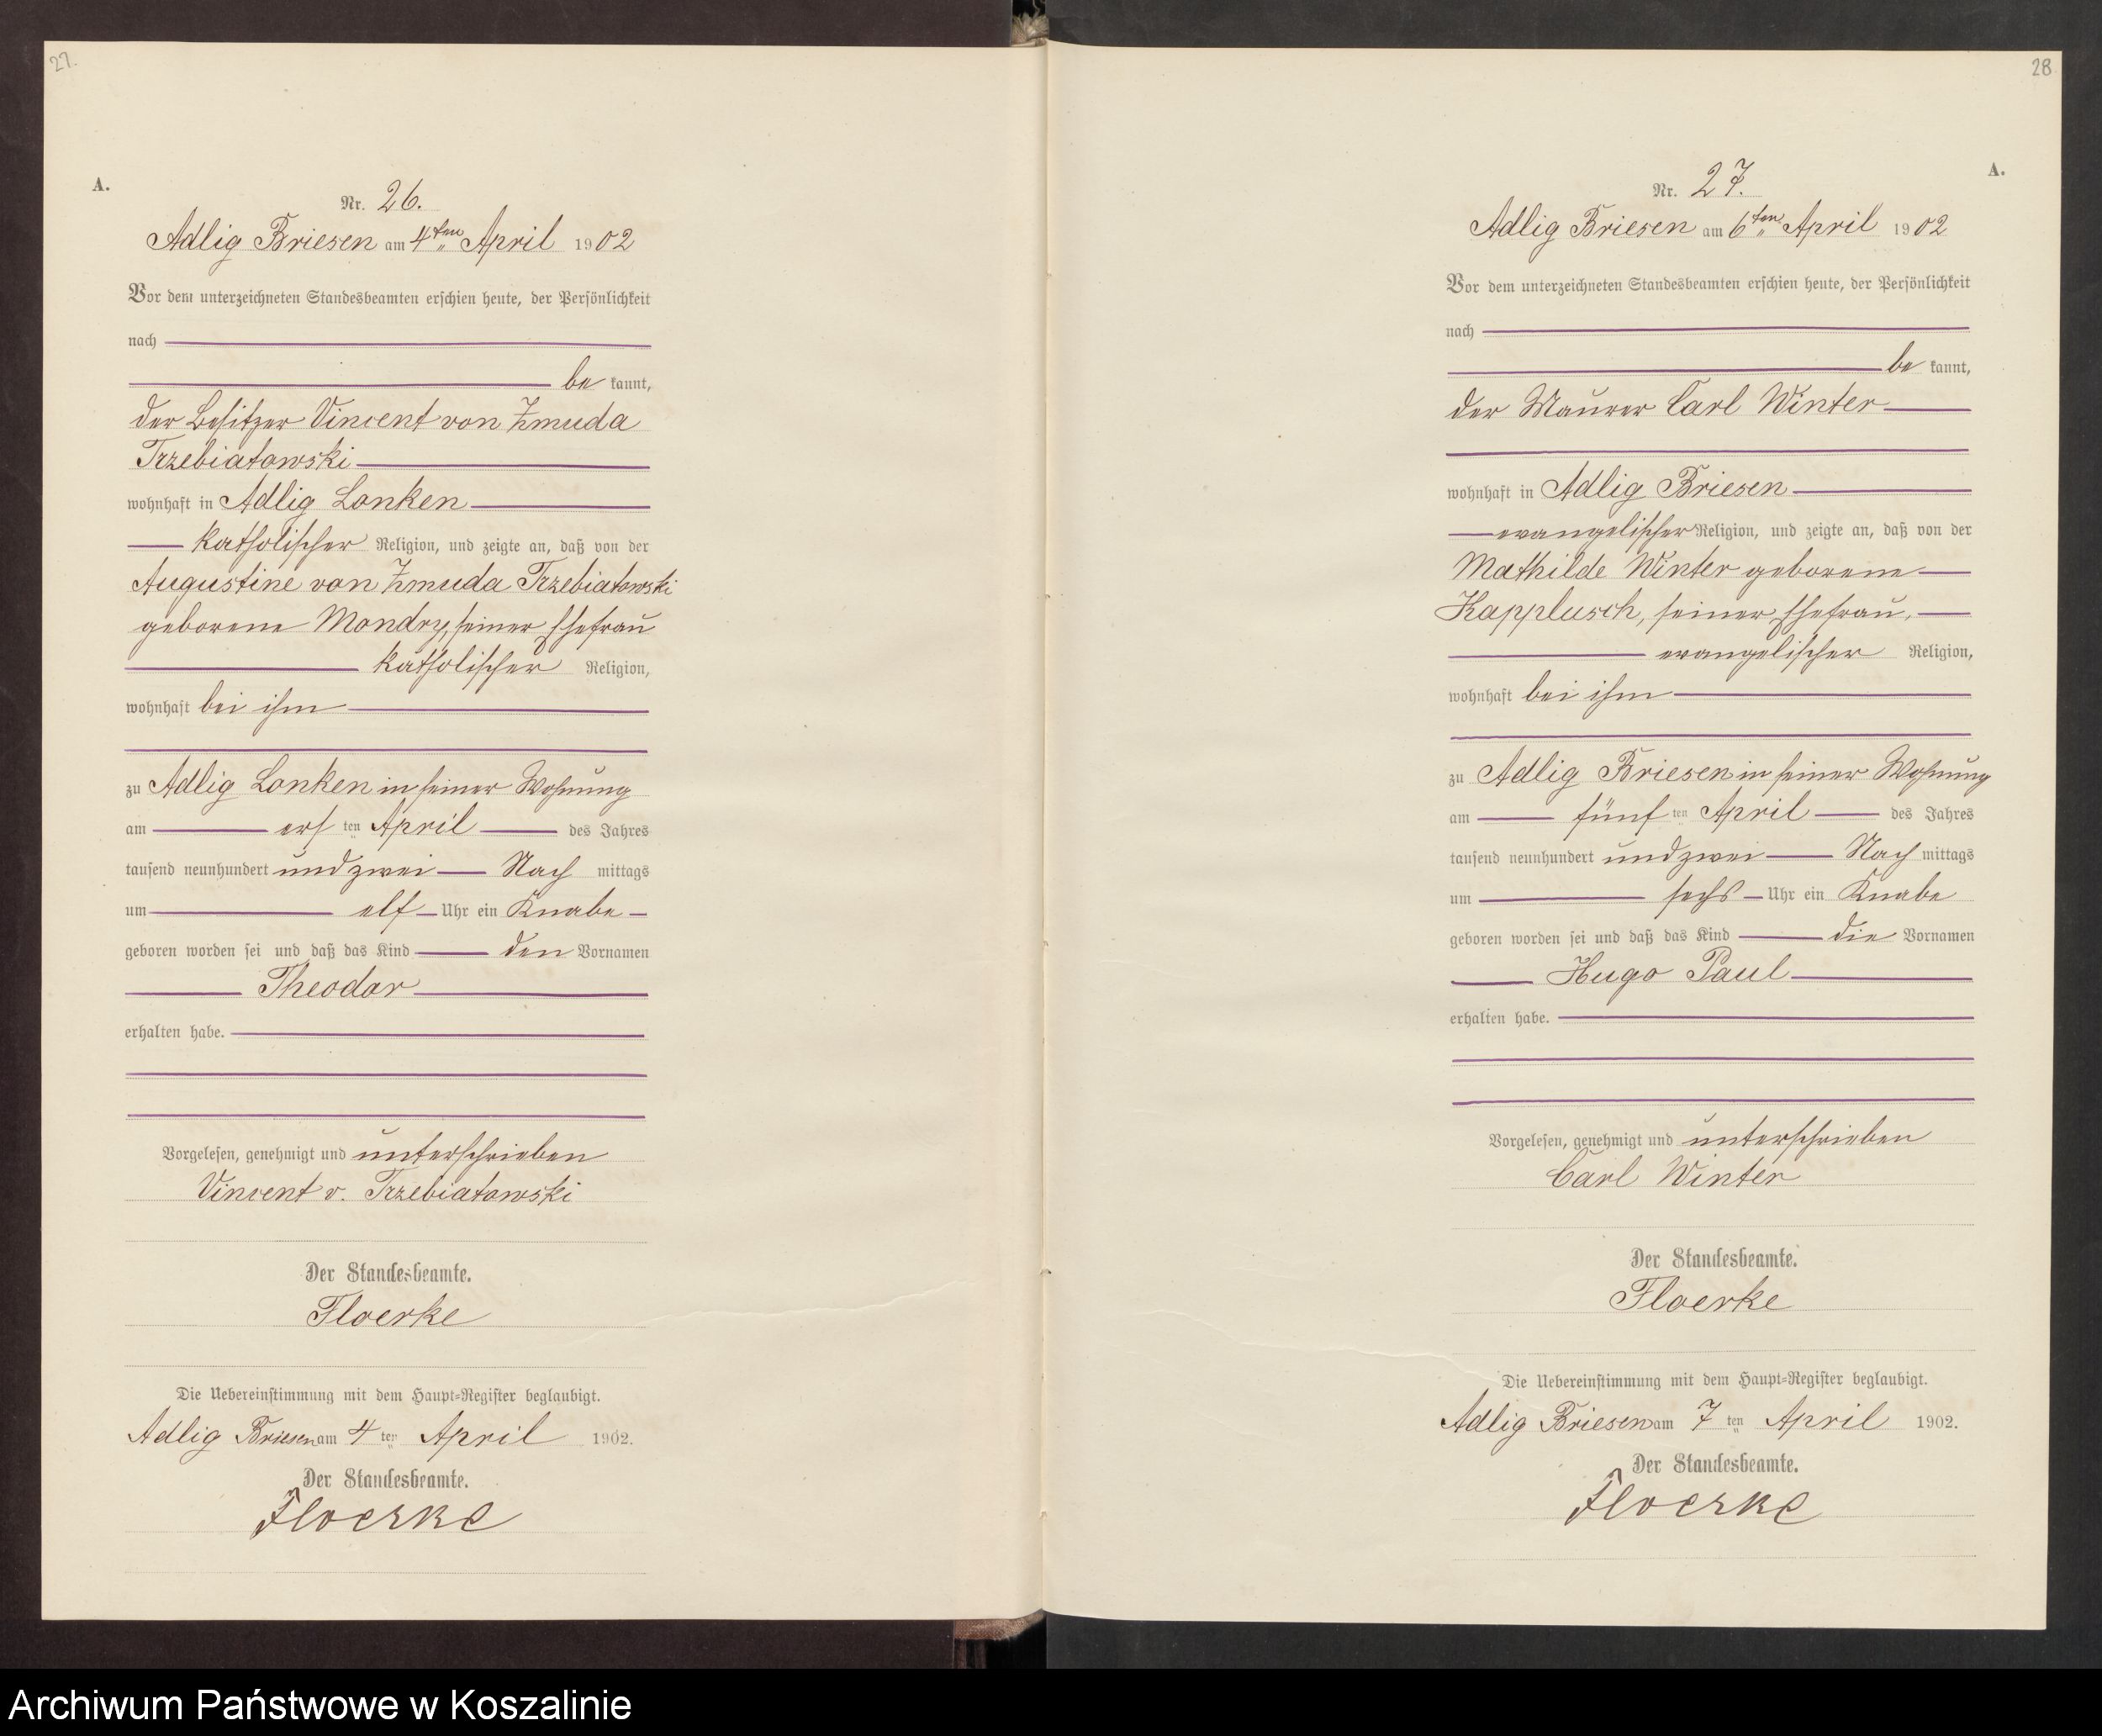 27.
A.
Nr. 26.
Adlig Briesen am 4ten April 1902
Vor dem unterzeichneten Standesbeamten erschien heute, der Persönlichkeit
nach
be kannt,
der Besitzer Vincent von Zmuda
Trzebiatowski
wohnhaft in Adlig Lonken
katholischer Religion, und zeigte an, daß von der
Augustine von Zmuda Trzebiatowski
geborene Mondry, seiner Ehefrau
katholischer Religion,
wohnhaft bei ihm
zu Adlig Lonken in seiner Wohnung
am ersten April des Jahres
tausend neunhundert und zwei Nach mittags
um elf Uhr ein Knabe
geboren worden sei und daß das Kind den Vornamen
Theodor
erhalten habe.
Vorgelesen, genehmigt und unterschrieben
Vincent v. Trzebiatowski
Der Standesbeamte.
Floerke
Die Uebereinstimmung mit dem Haupt-Register beglaubigt.
Adlig Briesen am 4ten April 1902.
Der Standesbeamte.
Floerke
28
A.
Nr. 27.
Adlig Briesen am 6ten April 1902
Vor dem unterzeichneten Standesbeamten erschien heute, der Persönlichkeit
nach
be kannt,
der Maurer Carl Winter
wohnhaft in Adlig Briesen
evangelischer Religion, und zeigte an, daß von der
Mathilde Winter geborene
Kapplusch, seiner Ehefrau,
evangelischer Religion,
wohnhaft bei ihm
zu Adlig Briesen in seiner Wohnung
am fünften April des Jahres
tausend neunhundert und zwei Nach mittags
um sechs Uhr ein Knabe
geboren worden sei und daß das Kind die Vornamen
Hugo Paul
erhalten habe.
Vorgelesen, genehmigt und unterschrieben
Carl Winter
Der Standesbeamte.
Floerke
Die Uebereinstimmung mit dem Haupt-Register beglaubigt.
Adlig Briesen am 7ten April 1902.
Der Standesbeamte.
Floerke
Archiwum Państwowe w Koszalinie